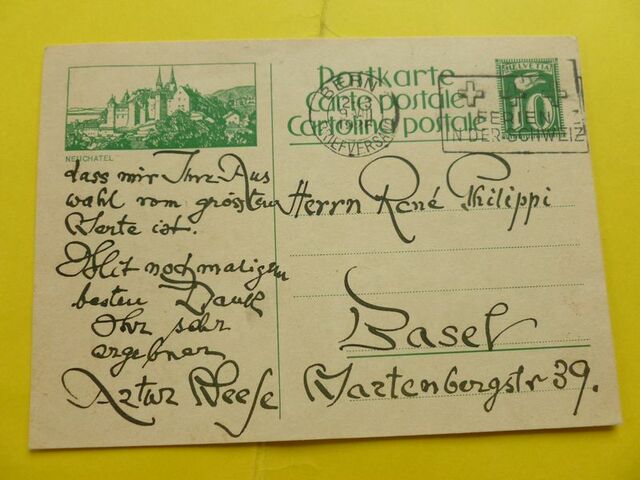 NEUCHATEL
Postkarte
Carte postale
Cartolina postale
HELVETIA
10
BERN
BRIEFVERSAND
FERIEN
IN DER SCHWEIZ
dass mir Ihre Aus
wahl vom grössten
Werte ist.
Mit nochmaligem
besten Dank
Ihr sehr
ergebner
Artur Weese
Herrn René Philippi
Basel
Wartenbergstr 39.